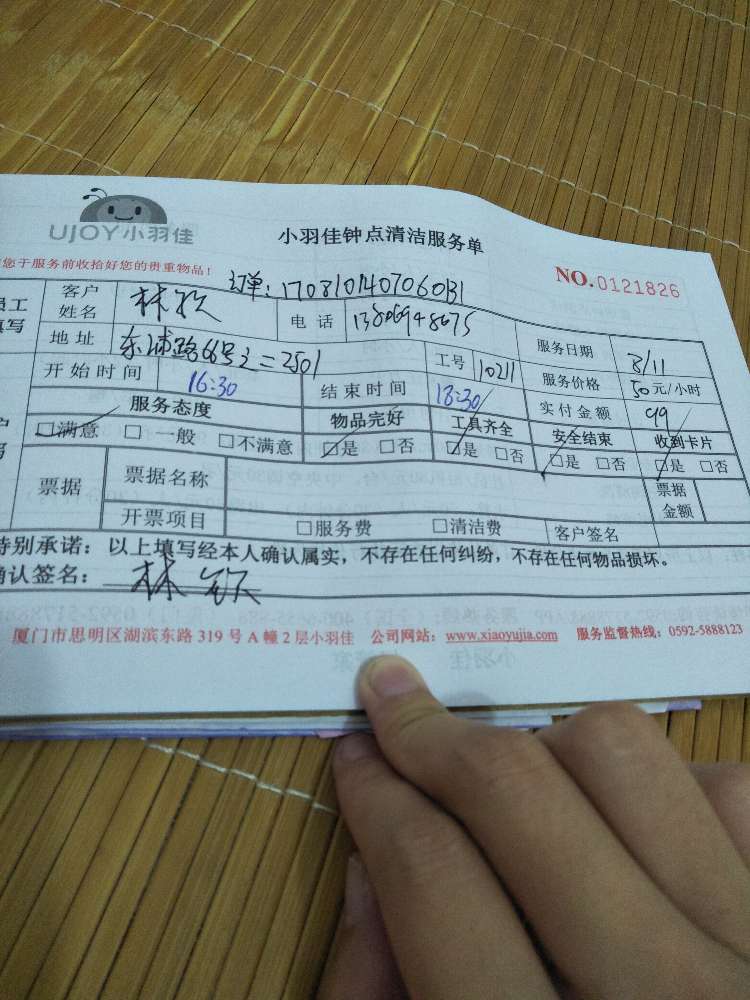 UJOY小羽佳
小羽佳钟点清洁服务单
您于服务前收拾好您的贵重物品!
订单: 1708101407060131
NO.0121826
员工
填写
客户
姓名
林钦
电 话
13806948675
服务日期
8/11
地 址
东浦路66号之二2501
工号
10211
服务价格
50元/小时
开始时间
16:30
结束时间
18:30
实付金额
99
服务态度
物品完好
工具齐全
安全结束
收到卡片
□满意 □一般 □不满意
□是 □否
□是 □否
□是 □否
□是 □否
票据
票据名称
票据
金额
开票项目
□服务费 □清洁费
客户签名
特别承诺:以上填写经本人确认属实,不存在任何纠纷,不存在任何物品损坏。
确认签名: 林钦
厦门市思明区湖滨东路 319 号 A 幢 2 层小羽佳 公司网站: www.xiaoyujia.com 服务监督热线: 0592-5888123